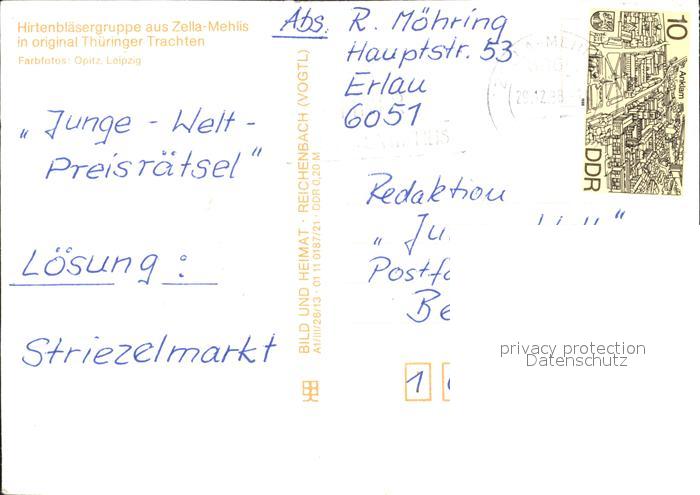 Hirtenbläsergruppe aus Zella-Mehlis
in original Thüringer Trachten
Farbfotos: Opitz, Leipzig
„Junge - Welt -
Preisrätsel“
Lösung :
Striezelmarkt
BILD UND HEIMAT · REICHENBACH (VOGTL)
A1/III/26/13 · 01 11 0187/21 · DDR 0,20 M
Abs. R. Möhring
Hauptstr. 53
Erlau
6051
10
Anklam
DDR
Redaktion
„Ju
Postfa
Be
1
privacy protection
Datenschutz